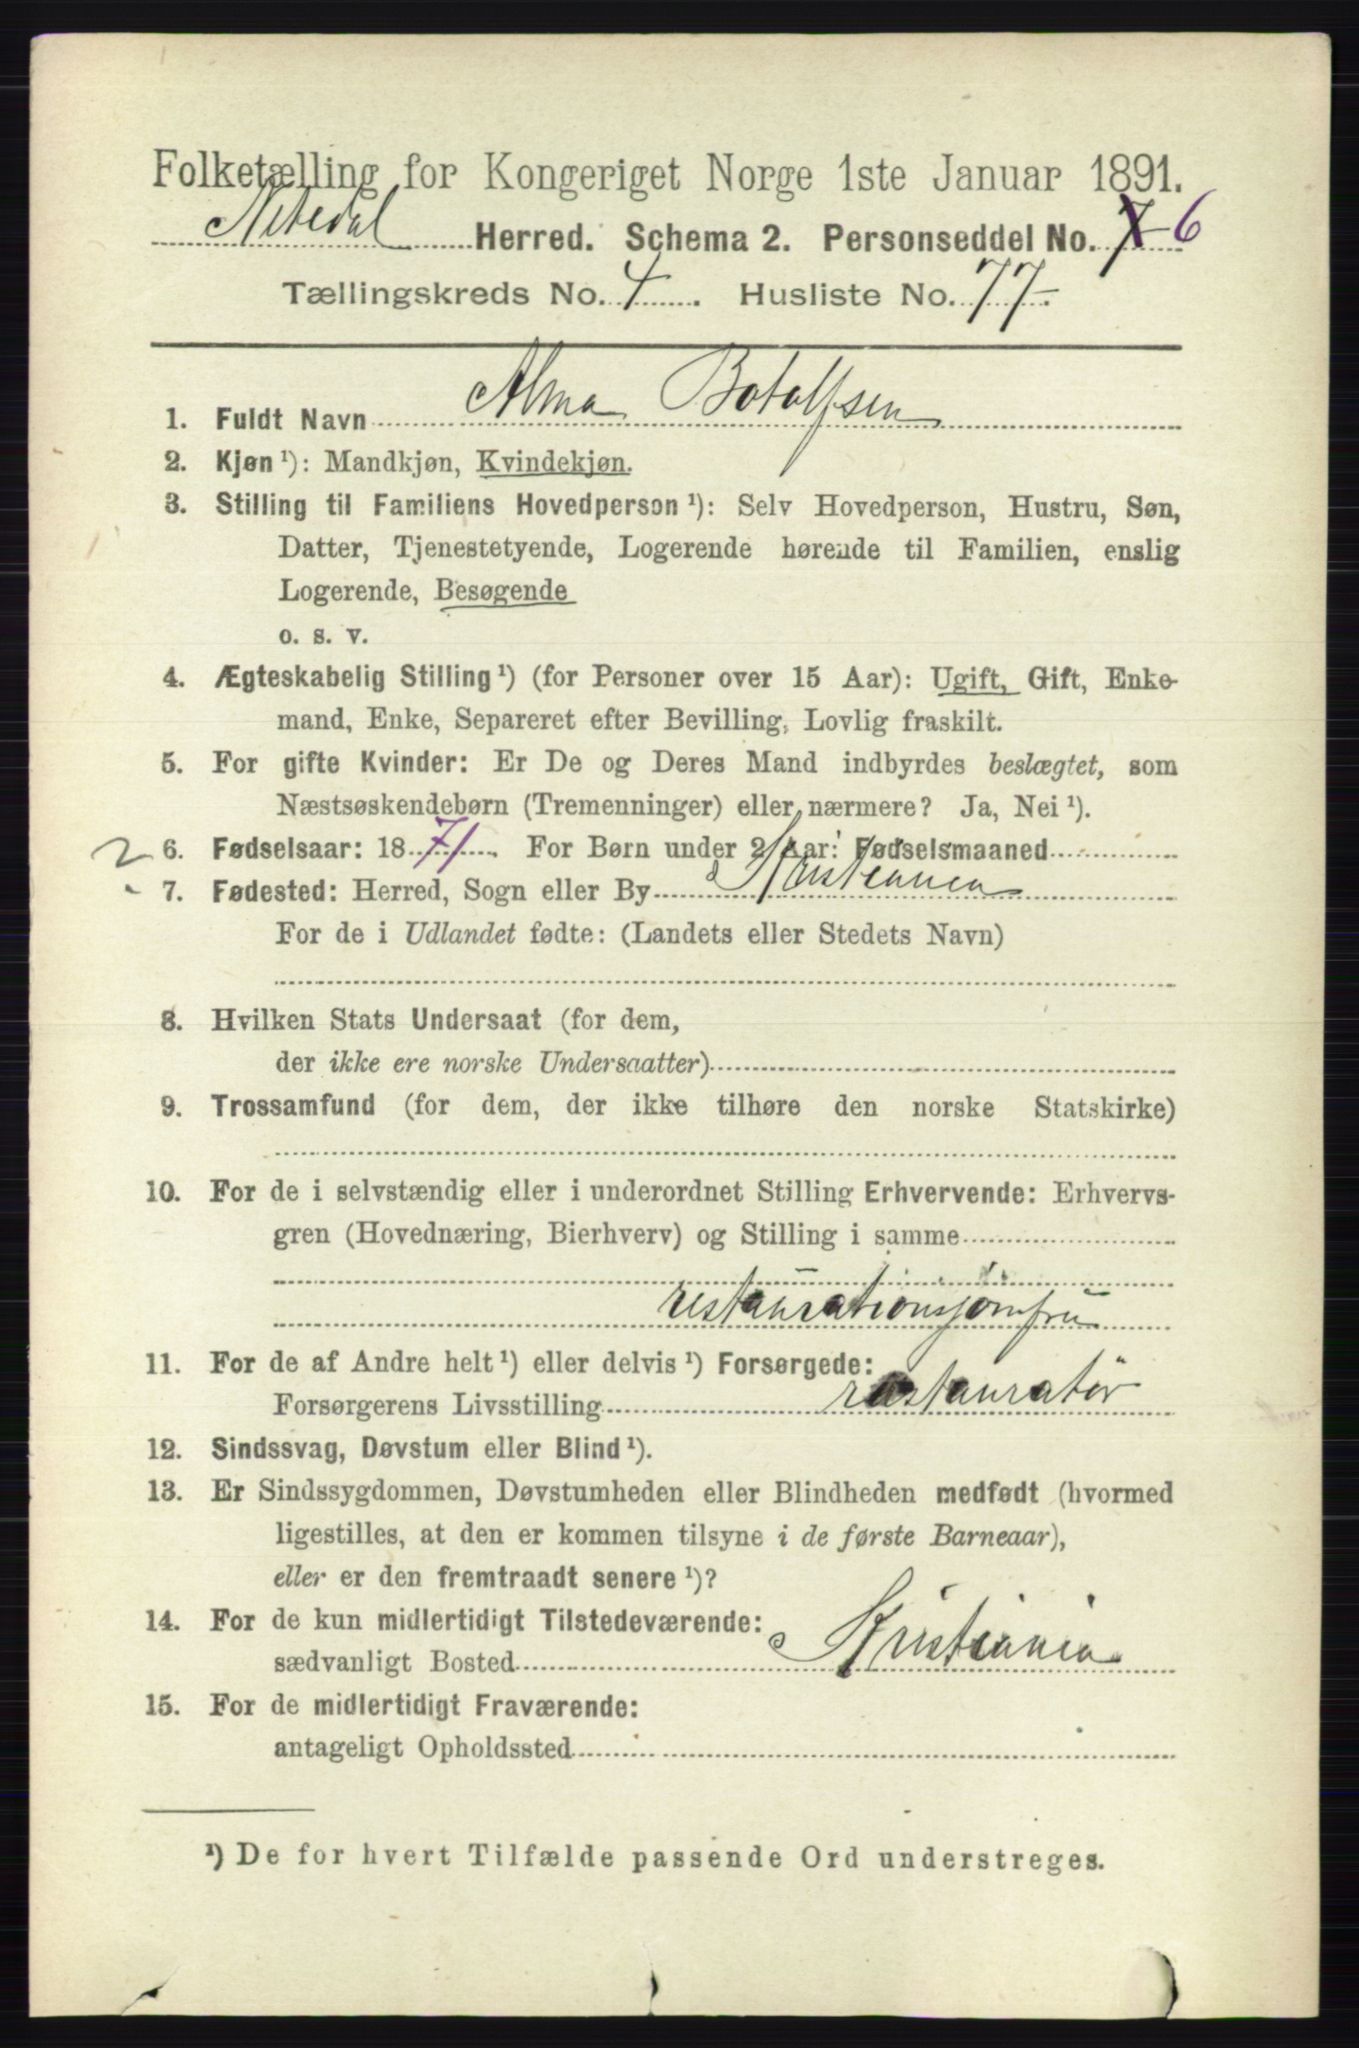 Folketælling for Kongeriget Norge 1ste Januar 1891.
Nitedal Herred. Schema 2. Personseddel No. 7 6
Tællingskreds No. 4. Husliste No. 77.
1. Fuldt Navn Alma Botolfsen
2. Kjøn ¹): Mandkjøn, Kvindekjøn.
3. Stilling til Familiens Hovedperson ¹): Selv Hovedperson, Hustru, Søn,
Datter, Tjenestetyende, Logerende hørende til Familien, enslig
Logerende, Besøgende
o. s. v.
4. Ægteskabelig Stilling ¹) (for Personer over 15 Aar): Ugift, Gift, Enke-
mand, Enke, Separeret efter Bevilling, Lovlig fraskilt.
5. For gifte Kvinder: Er De og Deres Mand indbyrdes beslægtet, som
Næstsøskendebørn (Tremenninger) eller nærmere? Ja, Nei ¹).
2 6. Fødselsaar: 1871. For Børn under 2 Aar: Fødselsmaaned
7. Fødested: Herred, Sogn eller By Kristiania
For de i Udlandet fødte: (Landets eller Stedets Navn)
8. Hvilken Stats Undersaat (for dem,
der ikke ere norske Undersaatter)
9. Trossamfund (for dem, der ikke tilhøre den norske Statskirke)
10. For de i selvstændig eller i underordnet Stilling Erhvervende: Erhvervs-
gren (Hovednæring, Bierhverv) og Stilling i samme
restaurationsjomfru
11. For de af Andre helt ¹) eller delvis ¹) Forsørgede:
Forsørgerens Livsstilling restauratør
12. Sindssvag, Døvstum eller Blind ¹).
13. Er Sindssygdommen, Døvstumheden eller Blindheden medfødt (hvormed
ligestilles, at den er kommen tilsyne i de første Barneaar),
eller er den fremtraadt senere ¹)?
14. For de kun midlertidigt Tilstedeværende:
sædvanligt Bosted Kristiania
15. For de midlertidigt Fraværende:
antageligt Opholdssted
¹) De for hvert Tilfælde passende Ord understreges.